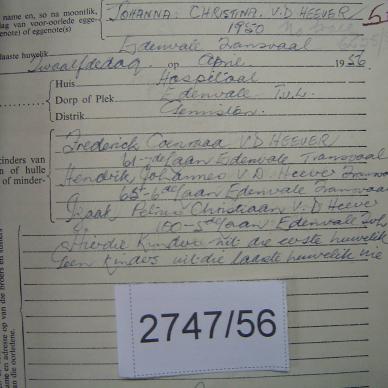 name en, so na moontlik,
dag van voor-oorlede egge-
(note) of eggenote(s)
JOHANNA: CHRISTINA. V.D HEEVER
1950
laaste huwelik
Edenvale Transvaal
Twaalfdedag. op April 1956
Huis Hospitaal
Dorp of Plek Edenvale Tvl.
Distrik Germiston.
kinders van
n of hulle
of minder-
Frederick Coenraad V.D HEEVER
laan Edenvale Transvaal
Hendrik Johannes V.D. Heever
65 6de laan Edenvale Transvaal
Christiaan V.D Heever
100-5de laan Edenvale
Hierdie Kinders uit die eerste huwelik
Geen Kinders uit die laaste huwelik nie
2747/56
name en adresse op van die broers en susters
die oorledene.